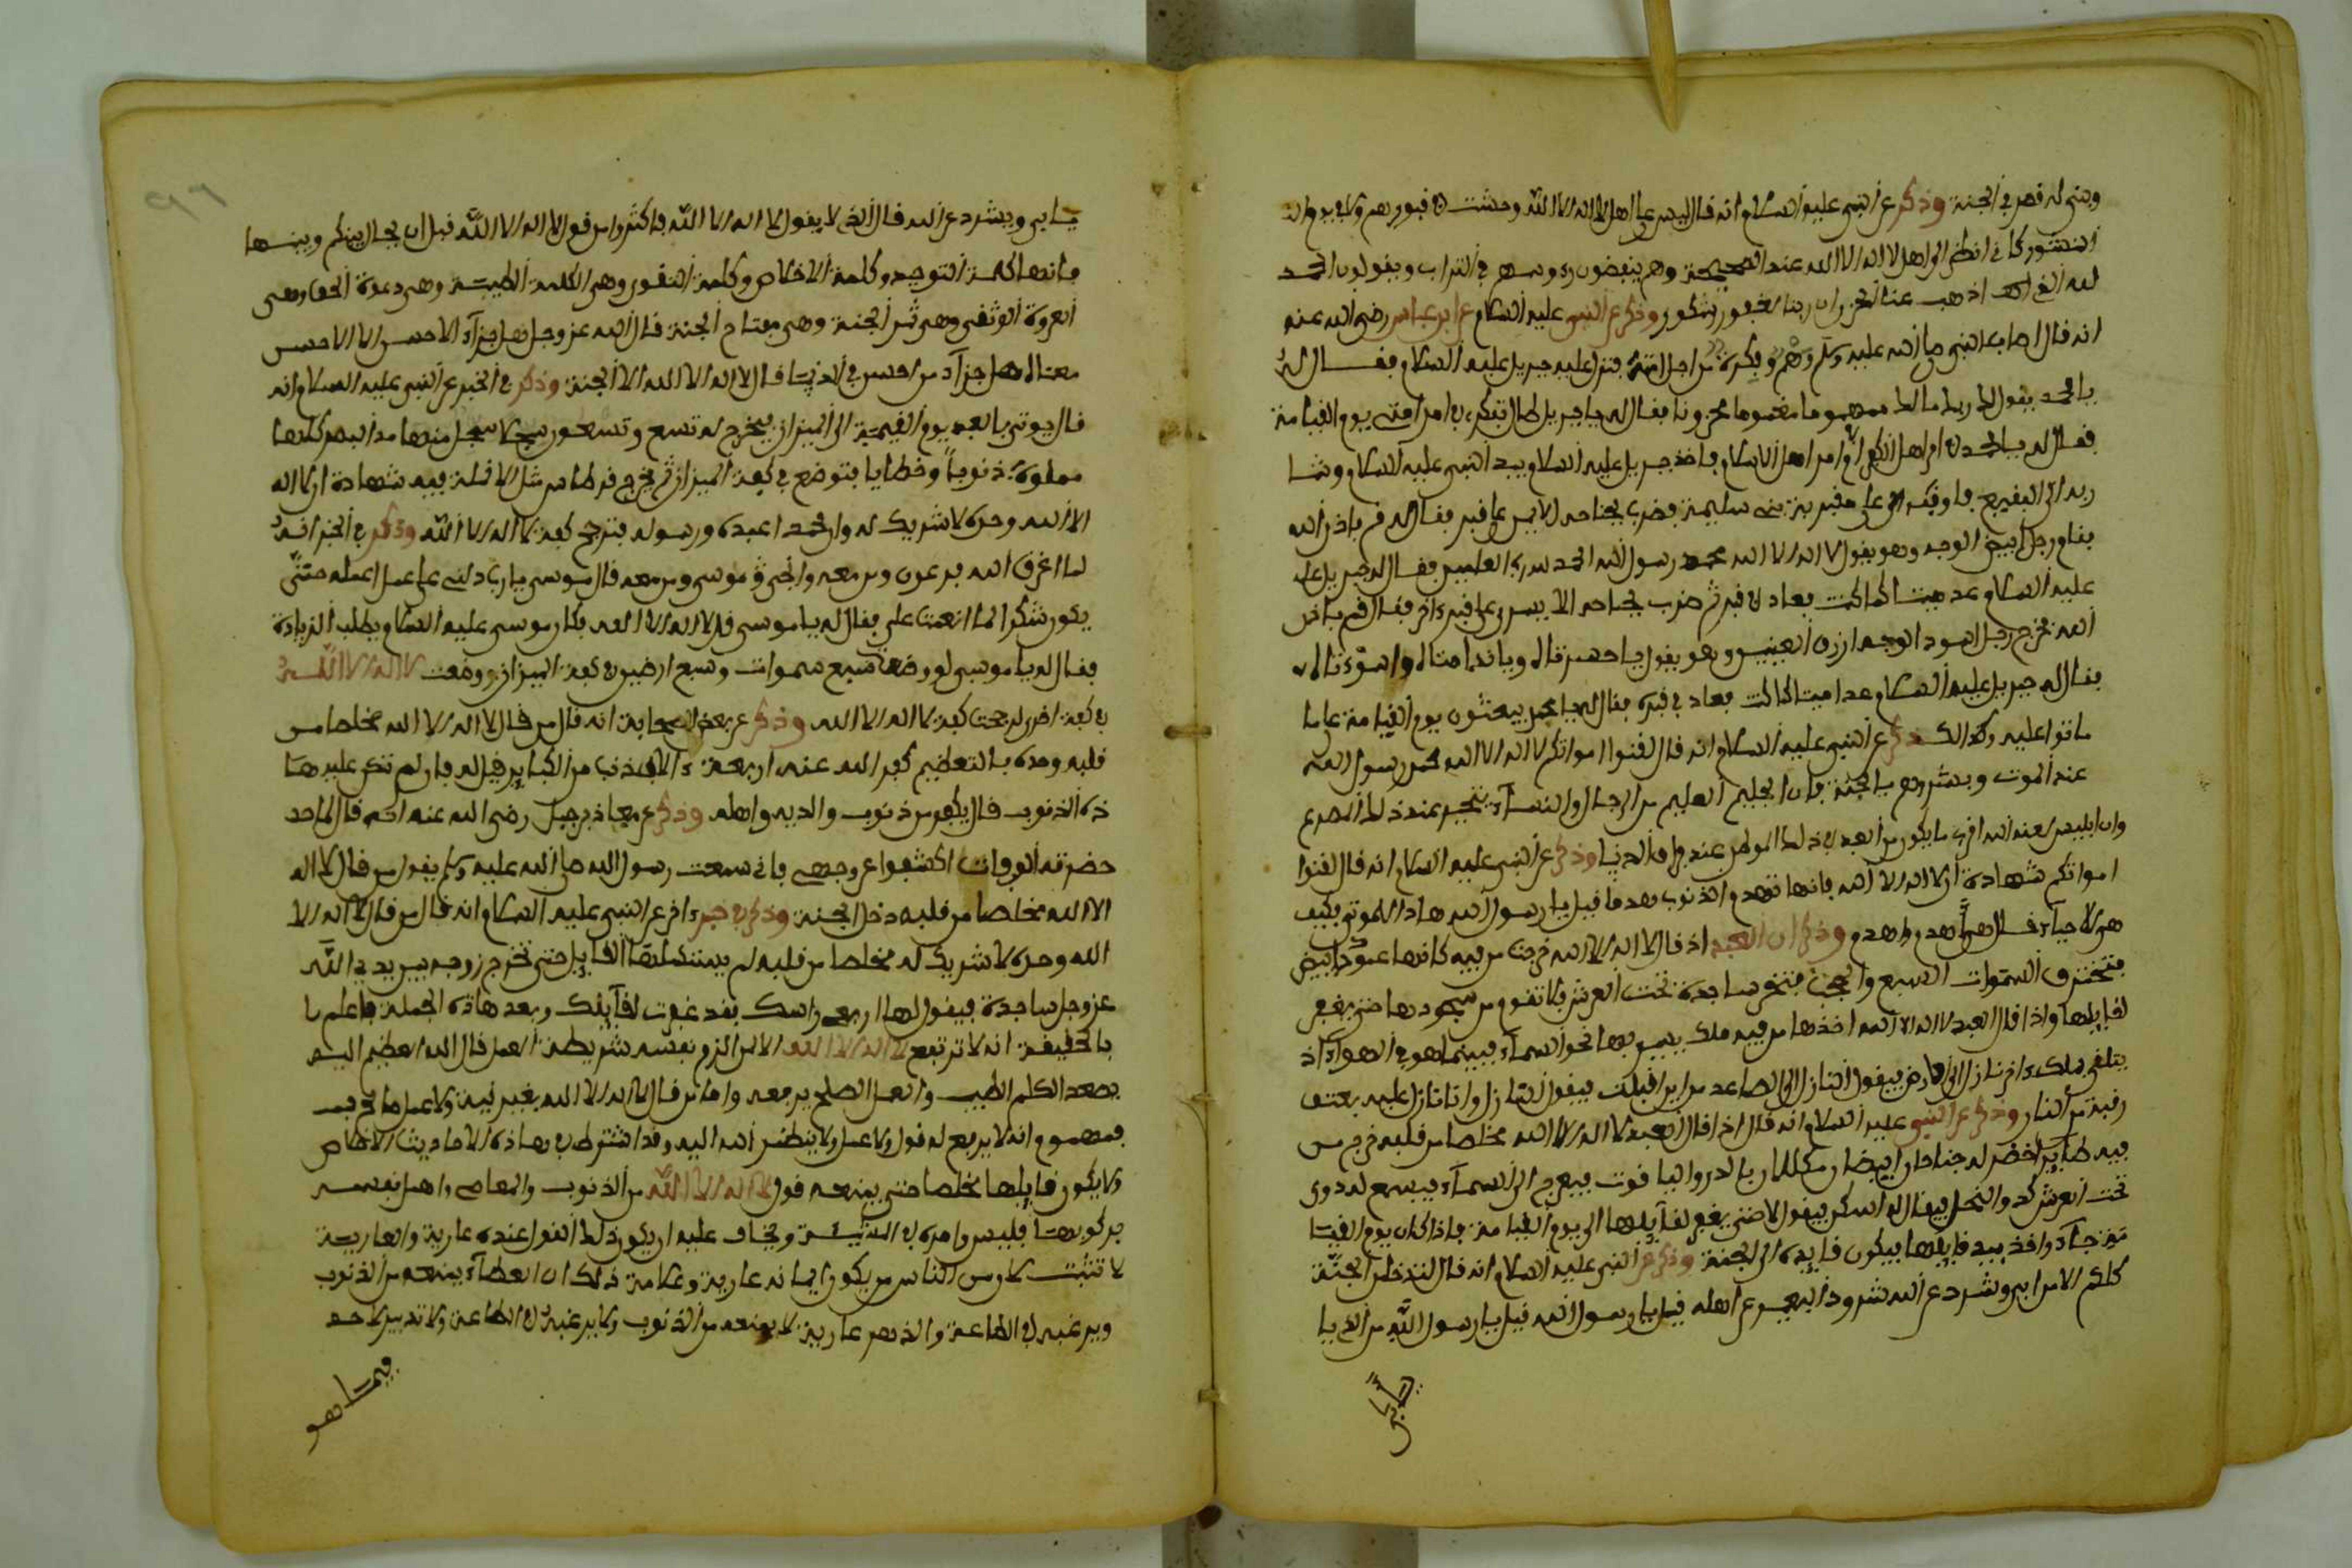 وبنى له قصر في الجنة وذكر عن النبي عليه السلام انه قال ليس على اهل لا اله الا الله وحشت في قبورهم ولا في يوم
النشور كاني انظر الى اهل لا اله الا الله عند الصيحة وهم ينفضون رءوسهم في التراب ويقولون الحمد
لله الذي اذهب عنا الحزن ان ربنا لغفور شكور وذكر عن النبي عليه السلام عن ابن عباس رضي الله عنه
انه قال اصابه النبي صلى الله عليه وسلم وهم وفكرة من اجل امته فنزل عليه جبريل عليه السلام فقال له
يا محمد يقول لك ربك ما لك مهموما مغموما محزونا فقال له يا جبريل طال تفكري في امر امتي يوم القيامة
فقال له يا محمد في امر اهل الكفر او امر اهل الاسلام فاخذ جبريل عليه السلام بيد النبي عليه السلام ومشا
به الى البقيع فاوقف على مقبرة بني سليمة فضرب بجناحه الايمن على قبر فقال له قم باذن الله
فقام رجل ابيض الوجه وهو يقول لا اله الا الله محمد رسول الله الحمد لله رب العلمين فقال له جبريل
عليه السلام عد ميتا كما كنت فعاد في قبره ثم ضرب بجناحه الايسر على قبر ءاخر فقال قم باذن
الله فخرج رجل اسود الوجه ازرق العينين وهو يقول يا حسرتاه ويا ندامتاه واسوءتاه
فقال له جبريل عليه السلام عد ميتا كما كنت فعاد في قبره فقال له يا محمد يبعثون يوم القيامة على ما
ماتوا عليه وكذالك ذكر عن النبي عليه السلام انه قال لقنوا امواتكم لا اله الا الله محمد رسول الله
عند الموت وبشروهم بالجنة فان الحليم العليم من الرجال والنساء يتحير عند ذلك المصرع
وان ابليس لعنه الله اقرب ما يكون من العبد في ذلك الموطن عند فراق الدنيا وذكر عن النبي عليه السلام انه قال لقنوا
امواتكم شهادة ان لا اله الا الله فانها تهدم الذنوب هدما قيل يا رسول الله هذا للموتى فكيف
هي للاحياء قال هي اهدم واهدم وذكر ان العبد اذ قال لا اله الا الله خرجت من فيه كانها عمود ابيض
فتخترق السموات السبع والحجب فتخر ساجدة تحت العرش فلا تقوم من سجودها حتى يغفر
لقايلها واذا قال العبد لا اله الا الله اخذها من فيه ملك يسير بها نحو السماء فبينما هو في الهواء اذ
يتلقى ملك ءاخر نازل الى الارض فيقول النازل الى الصاعد من اين اقبلت فيقول النازل وانا نازل عليه بعتق
رقبة من النار وذكر عن النبي عليه السلام انه قال اذا قال العبد لا اله الا الله مخلصا من قلبه خرج من
فيه طاير اخضر له جناحان ابيضان مكللان بالدر واليا قوت فيعرج الى السماء فيسمع له دوي
تحت العرش كدو النحل فيقال له اسكن فيقول لا حتى يغفر لقايلها الى يوم القيامة فاذا كان يوم القيا
مة جاء واخذ بيد قايلها فيكون قايده الى الجنة وذكر عن النبي عليه السلام انه قال لتدخلن الجنة
كلكم الا من ابى وشرد عن الله شرود البعير عن اهله قيل يا رسول الله من الذي يا
يابى
يابى ويشرد عن الله قال الذي لا يقول لا اله الا الله فاكثروا من قول لا اله الا الله قبل ان يحال بينكم وبينها
فانها كلمة التوحيد وكلمة الاخلاص وكلمة التقوى وهي الكلمة الطيبة وهي دعوة الحق وهي
العروة الوثقى وهي ثمن الجنة وهي مفتاح الجنة قال الله عز وجل هل جزاء الاحسن الا الاحسن
معناه هل جزاء من احسن في الدنيا قال لا اله الا الله الا الجنة وذكر في الخبر عن النبي عليه السلام انه
قال يوتى بالعبد يوم القيمة الى الميزان فيخرج له تسع وتسعون سجلا سجل منها مد البصر كلها
مملوة ذنوبا وخطايا فتوضع في كفة الميزان ثم يخرج قرطاس مثل الانملة فيه شهادة ان لا اله
الا الله وحده لا شريك له وان محمدا عبده ورسوله فترجح كفة لا اله الا الله وذكر في الخبر انه
لما اغرق الله فرعون ومن معه وانجى موسى ومن معه قال موسى يا رب دلني على عمل اعمله حتى
يكون شكرا لما انعمت علي فقال له يا موسى قل لا اله الا الله فكان موسى عليه السلام يطلب الزيادة
فقال له يا موسى لو وضعت سبع سموات وسبع ارضين في كفة الميزان ووضعت لا اله الا الله
في كفة اخرى لرجحت كفة لا اله الا الله وذكر عن بعض الصحابة انه قال من قال لا اله الا الله مخلصا من
قلبه ومده بالتعظيم كفر الله عنه اربعة ءالاف ذنب من الكباير قيل له فان لم تكن عليه هـ
ذه الذنوب قال يكفر من ذنوب والديه واهله وذكر عن معاذ بن جبل رضي الله عنه انه قال لما
حضرته الوفات اكشفوا عن وجهي فاني سمعت رسول الله صلى الله عليه وسلم يقول من قال لا اله
الا الله مخلصا من قلبه دخل الجنة وذكر في خبر ءاخر عن النبي عليه السلام انه قال من قال لا اله الا
الله وحده لا شريك له مخلصا من قلبه لم يستكملها القايل حتى تخرج من وجه بين يدي الله
عز وجل ساجدة فيقول لها ارفعي راسك فقد غفرت لقايلك وبعد هاذه الجملة فاعلم يا
بالحقيقة انه لا ترتفع لا اله الا الله الا لمن الزم نفسه شريطة العمل قال الله العظيم اليه
يصعد الكلم الطيب والعمل الصلح يرفعه واما من قال لا اله الا الله بغير نية ولا عمل
فمهموم وانه لا يرفع له قول ولا عمل ولا ينظر الله اليه وقد اشترط في هاذه الاحاديث الاخلاص
ولا يكون قايلها مخلصا حتى يمنعه قول لا اله الا الله من الذنوب والمعاصي واهل نفسه
فليس وامره في المشيـة ويخاف عليه ان يكون ذلك القول عنده عارية والعارية
لا تثبت لان من الناس من يكون ايمانه عارية وعلامة ذلك ان العطاء يمنعه من الذنوب
ويرغبه في الطاعة والذي هو عارية لا يمنعه من الذنوب ولا يرغبه في الطاعة ولا تدبير لاحد
فيما هو